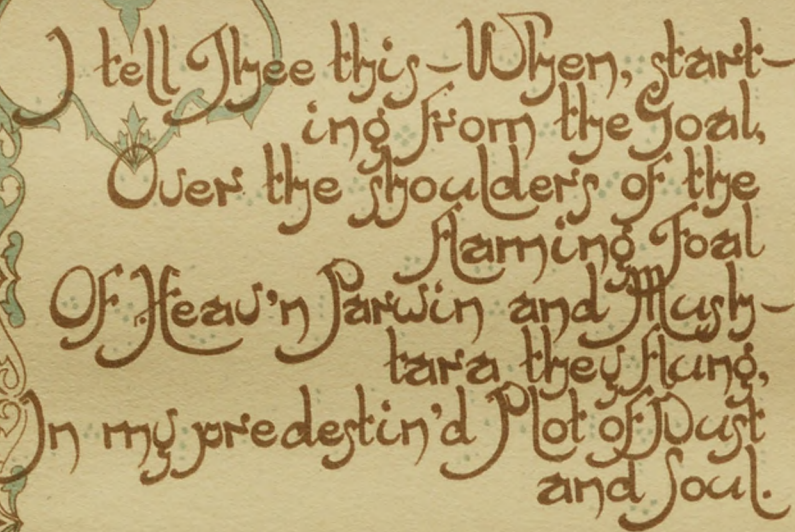 I tell Thee this—When, start-
ing from the Goal,
Over the shoulders of the
flaming Foal
Of Heav'n Parwin and Mush-
tara they flung,
In my predestin'd Plot of Dust
and Soul.